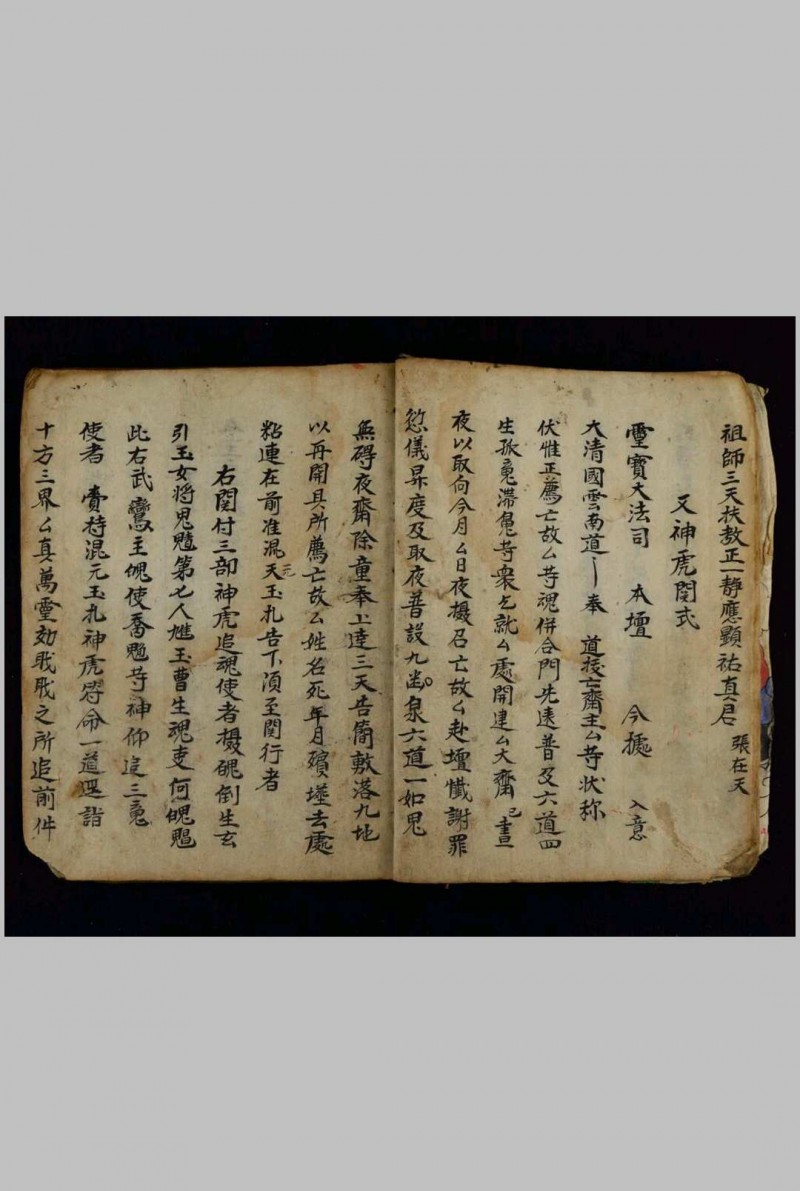 祖師三天扶教正一靜應顯祐真君 張在天
又神虎関式
靈寳大法司 本壇 今據 入意
大清國雲南道 奉 道㧞亡齋主厶等狀称
伏惟正薦亡故厶等魂併合門先遠普及六道四
生孤䰟滯䰟等衆乞就厶處開建厶大齋已晝
夜以取向今月厶日夜攝召亡故厶赴壇懺謝罪
愆儀昇度及取夜普設九幽泉六道一如鬼
無碍夜齋除童奉上達三天告簡敷落九地
以再開具所薦亡故厶姓名死年月殯塟去處
粘連在前准混元天玉札告下湏至関行者
右関付三部神虎追魂使者攝魄倒生玄
引玉女將鬼第七人玉曹生魂吏何魄
此右武主魄使喬等神仰追三䰟
使者 賫持混元玉札神虎符命一道逕詣
十方三界厶真萬靈之所追前件